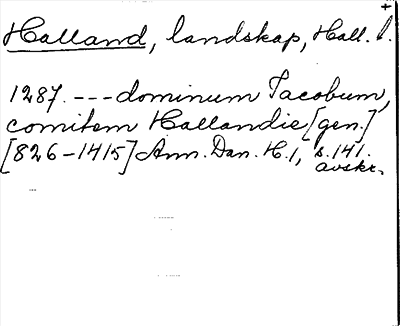 Halland, landskap, Hall. l.
1287. --- dominum Jacobum,
comitem Hallandie [gen.]
[826-1415] Ann. Dan. H. 1, s. 141.
avskr.